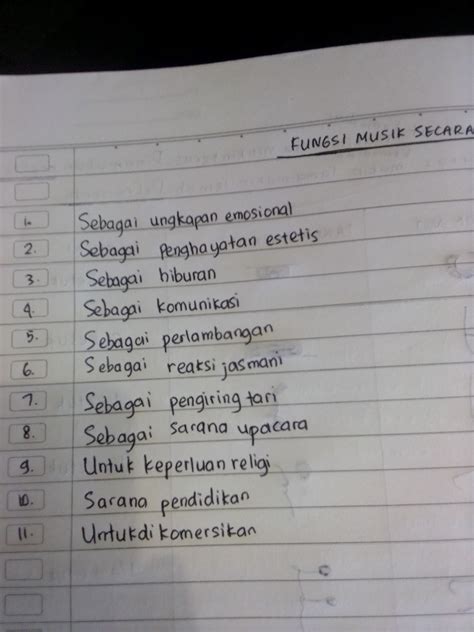 FUNGSI MUSIK SECARA
1. Sebagai ungkapan emosional
2. Sebagai penghayatan estetis
3. Sebagai hiburan
4. Sebagai komunikasi
5. Sebagai perlambangan
6. Sebagai reaksi jasmani
7. Sebagai pengiring tari
8. Sebagai sarana upacara
9. Untuk keperluan religi
10. Sarana pendidikan
11. Untuk dikomersikan